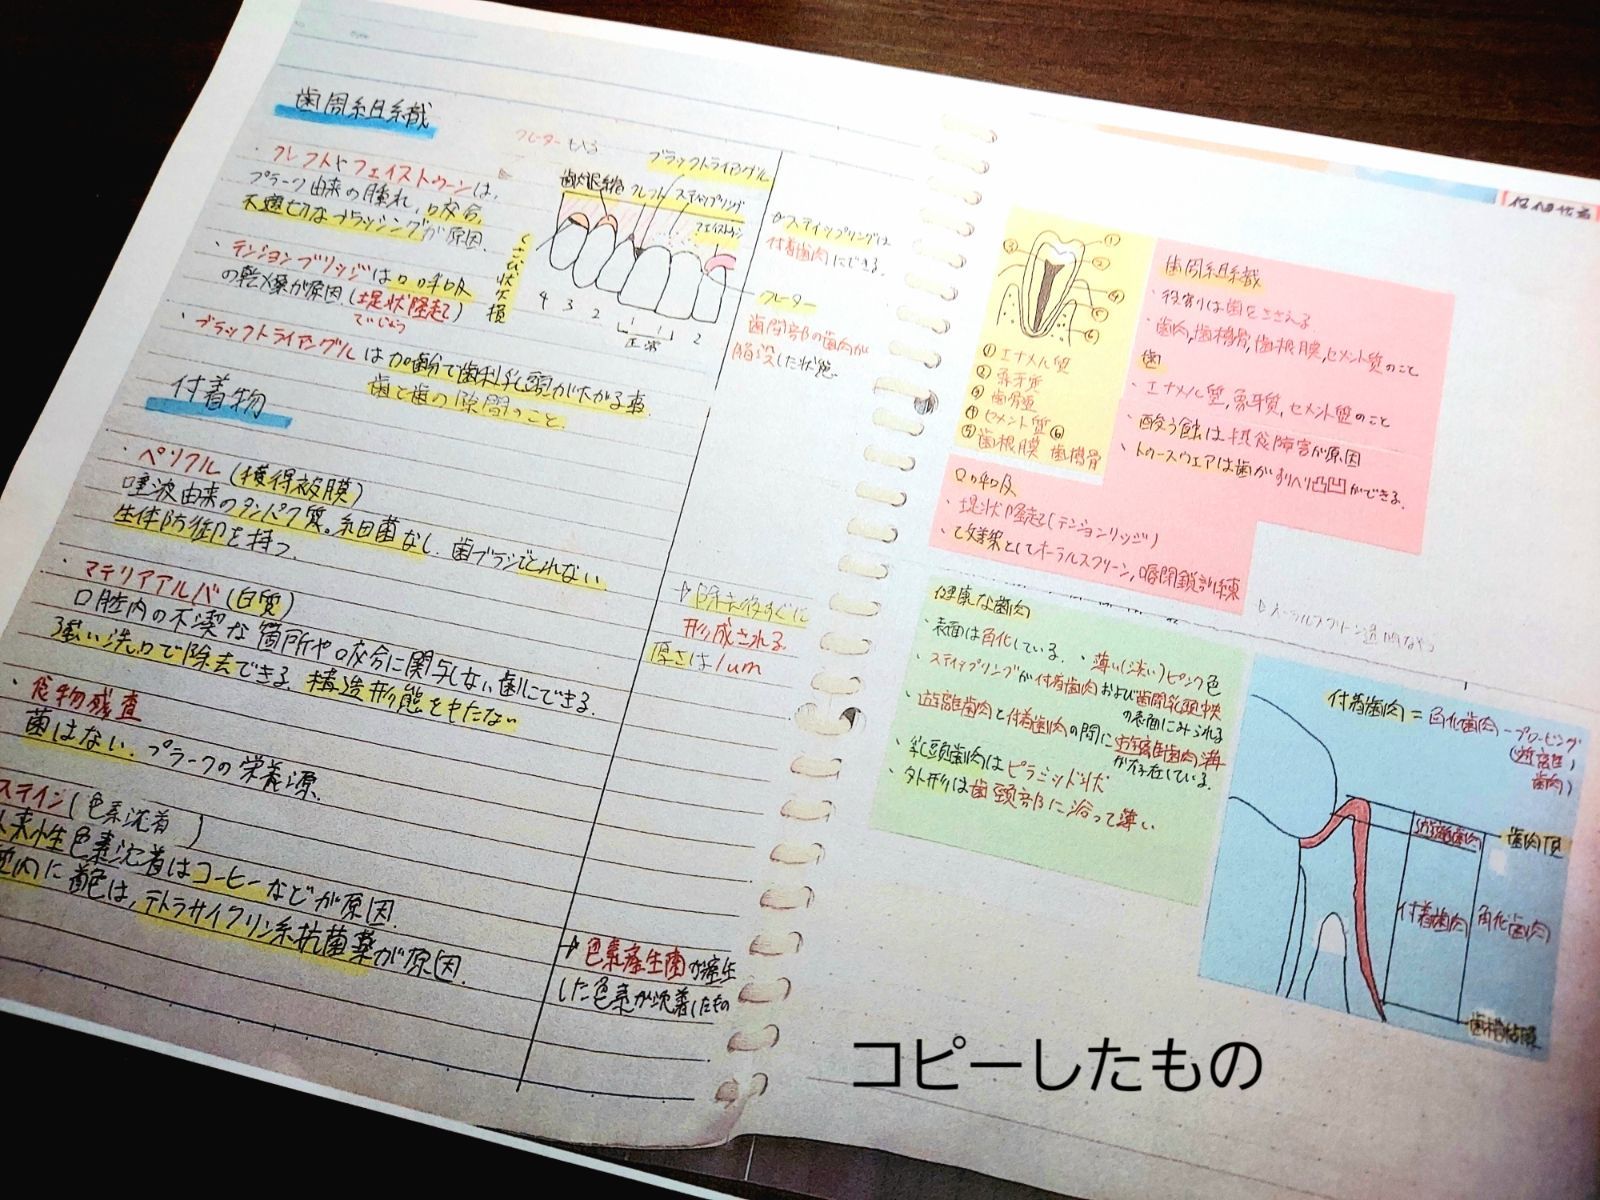 歯周組織
・クレフトやフェイストゥーンは、
プラーク由来の腫れ、咬合、
不適切なブラッシングが原因.
・テンションブリッジは口呼吸
の乾燥が原因(堤状隆起)
ていじょう
・ブラックトライアングルは加齢分で歯肉乳頭が下がる事.
歯と歯の隙間のこと.
クレーター
ブラックトライアングル
クレフト
スティップリング
フェイストゥン
くさび状欠損
4 3 2 1 1 2
正常
スティップリングは
付着歯肉にできる.
クレーター
歯間部の歯肉が
陥没した状態
付着物
・ペリクル(獲得被膜)
唾液由来のタンパク質。細菌なし.歯ブラシでとれない
生体防御を持つ.
→除去後すぐに
形成される
厚さは1um
・マテリアアルバ(白質)
口腔内の不潔な箇所や咬合に関与しない歯にできる.
強い洗口で除去できる.構造形態をもたない
・食物残渣
菌はない.プラークの栄養源.
ステイン(色素沈着)
外来性色素沈着はコーヒーなどが原因.
に着色は,テトラサイクリン系抗菌薬が原因.
→色素産生菌が産生
した色素が沈着したもの
① ② ③ ④ ⑤ ⑥
①エナメル質
②象牙質
③歯髄
④セメント質
⑤歯根膜 ⑥歯槽骨
歯周組織
・役割りは歯をささえる.
・歯肉,歯槽骨,歯根膜,セメント質のこと
歯
・エナメル質,象牙質,セメント質のこと
・酸う蝕は摂食障害が原因
・トゥースウェアは歯がすりヘリ凸凹ができる.
口呼吸
・堤状隆起(テンションリッジ)
・改善策としてオーラルスクリーン,唇閉鎖訓練
健康な歯肉
・表面は角化している.・薄い(淡い)ピンク色
・スティップリングが付着歯肉および歯間乳頭中央
の表面にみられる
・遊離歯肉と付着歯肉の間に遊離歯肉溝
が存在している.
・乳頭歯肉はピラミッド状
・外形は歯頸部に沿って薄い
付着歯肉=角化歯肉-プロービング
(遊離
歯肉)
遊離歯肉
歯肉頂
付着歯肉
角化歯肉
歯槽粘膜
コピーしたもの